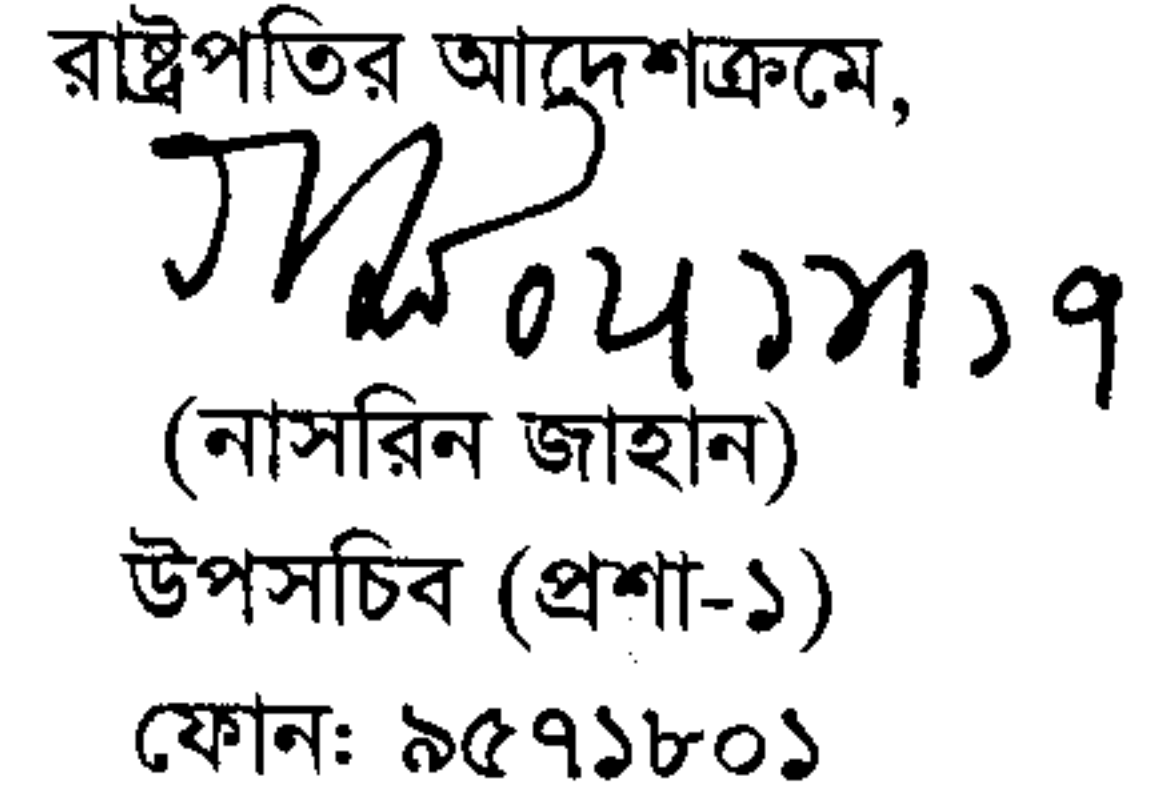 রাষ্ট্রপতির আদেশক্রমে,
(নাসরিন জাহান)
উপসচিব (প্রশা-১)
ফোন: ৯৫৭১৮০১